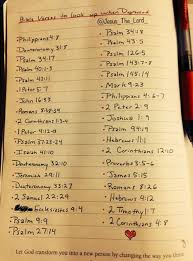 Bible Verses to look up when Depressed
@Jesus_The_Lord_
-Philippians 4:8
-Deuteronomy 31:8
-Psalm 34:17
-Psalm 40:1-3
-Psalm 42:11
-1 Peter 5:7
-John 16:33
-Romans 8:38-39
-2 Corinthians 1:3-4
-1 Peter 4:12-13
-Psalm 37:23-24
-Isaiah 41:10
-Deuteronomy 33:27
-Jeremiah 29:11
-2 Samuel 22:29
-Ecclesiastes 9:4
-Psalm 9:9
-Psalm 27:14
-Psalm 34:18
-Psalm 43:5
-Psalm 126:5
-Psalm 143:7-8
-Psalm 145:14
-Micah 7:8
-Philippians 4:6-7
-2 Peter 2:9
-Joshua 1:9
-Psalm 94:19
-Hebrews 11:1
-2 Corinthians 12:10
-Proverbs 3:5-6
-James 5:11
-Romans 8:26
-Hebrews 4:12
-2 Timothy 1:7
-2 Corinthians 4:8-9
Let God transform you into a new person by changing the way you think